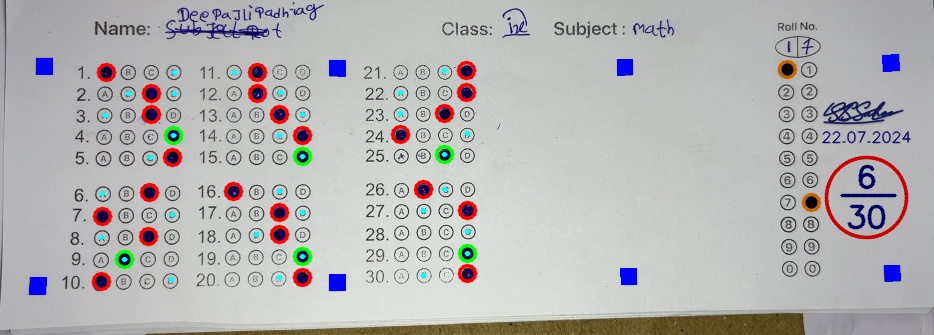 Deepajli padhiag
Name:
Class:
Subject: math
Roll No.
1 7
22.07.2024
6
30
1. A B C D
2. A B C D
3. A B C D
4. A B C D
5. A B C D
6. A B C D
7. A B C D
8. A B C D
9. A B C D
10. A B C D
11. A B C D
12. A B C D
13. A B C D
14. A B C D
15. A B C D
16. A B C D
17. A B C D
18. A B C D
19. A B C D
20. A B C D
21. A B C D
22. A B C D
23. A B C D
24. A B C D
25. A B C D
26. A B C D
27. A B C D
28. A B C D
29. A B C D
30. A B C D
1
2 2
3 3
4 4
5 5
6 6
7
8 8
9 9
0 0